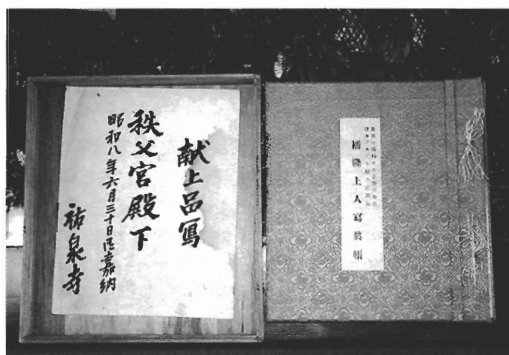 献上品寫
秩父宮殿下
昭和八年六月三十日御嘉納
祐泉寺
播隆上人寫眞帳